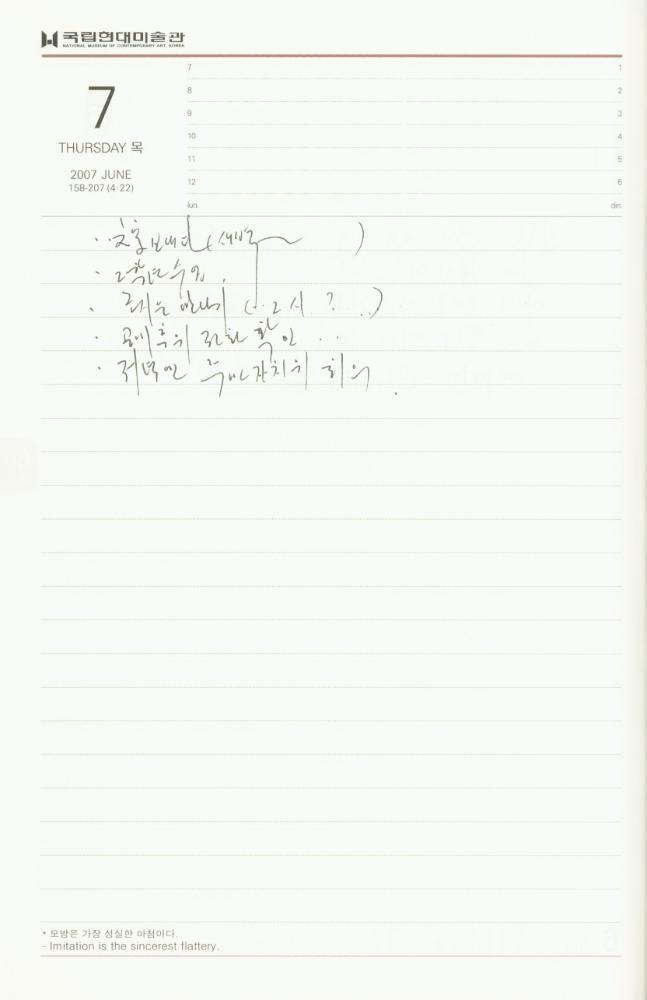 국립현대미술관
NATIONAL MUSEUM OF CONTEMPORARY ART, KOREA
7
THURSDAY 목
2007 JUNE
158-207 (4·22)
7 1
8 2
9 3
10 4
11 5
12 6
lun. din.
· 보내다 (새벽 )
· 2학년 수업.
· (.. 2시 ? ..)
· 전화 확인 ...
· 저녁엔 주민자치위 회의.
* 모방은 가장 성실한 아첨이다.
- Imitation is the sincerest flattery.